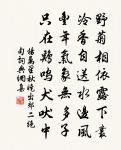 野菊相依露下叢
冷香自送水邊風
豐年氣象無多子
只在鷄鳴犬吠中
楊萬里秋曉出郊二絕
句詞典網集